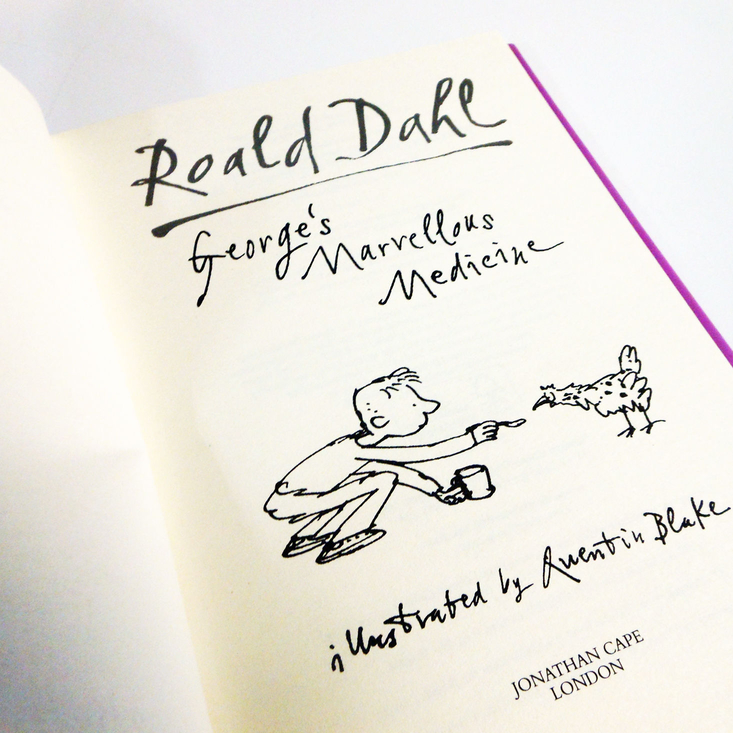 Roald Dahl
George's
Marvellous
Medicine
illustrated by Quentin Blake
JONATHAN CAPE
LONDON